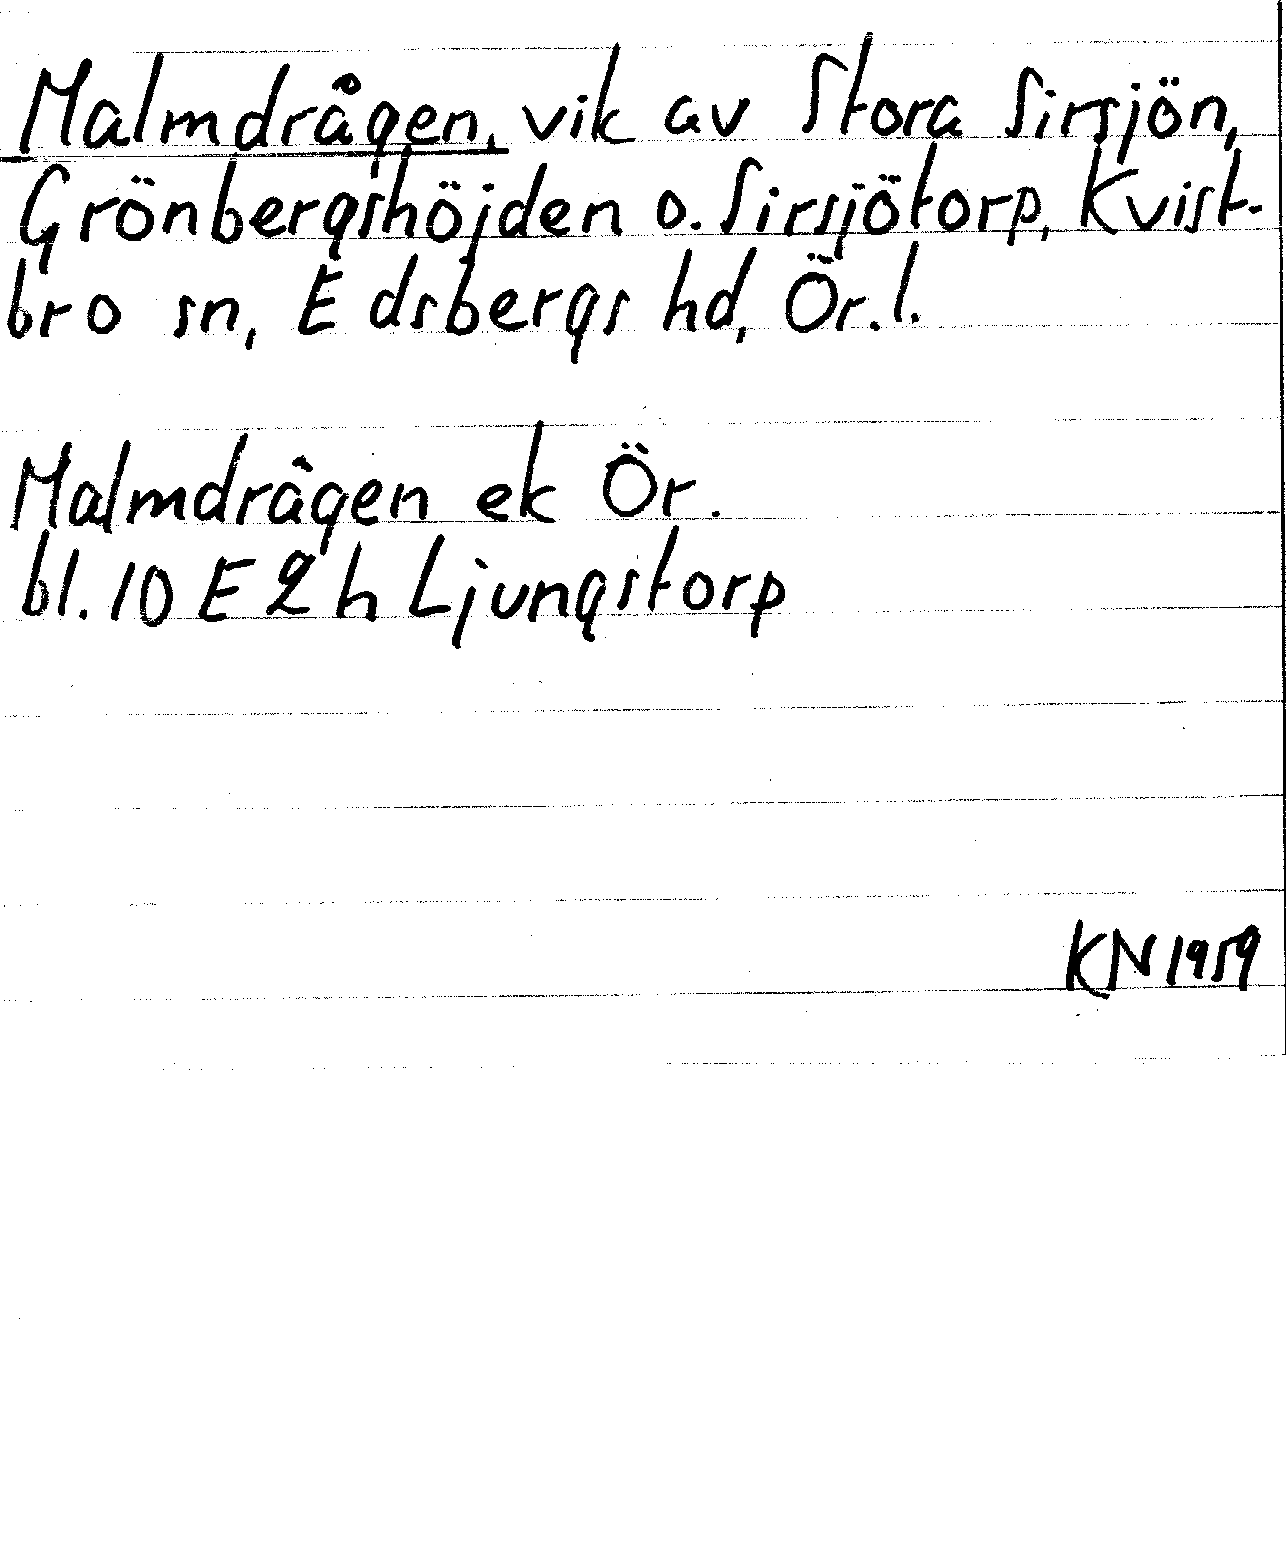 Malmdrågen, vik av Stora Sirsjön,
Grönbergshöjden o. Sirsjötorp, Kvist-
bro sn, Edsbergs hd, Ör. l.
Malmdrågen ek Ör.
bl. 10 E 2 h Ljungstorp
KN 1959